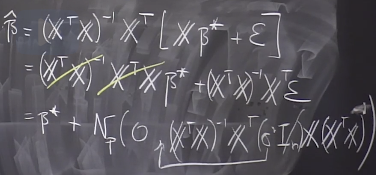 β̂ = (𝕏ᵀ𝕏)⁻¹ 𝕏ᵀ [𝕏 β* + ε]
= (𝕏ᵀ𝕏)⁻¹ 𝕏ᵀ𝕏 β* + (𝕏ᵀ𝕏)⁻¹ 𝕏ᵀ ε
= β* + N_p (0 (𝕏ᵀ𝕏)⁻¹ 𝕏ᵀ (σ² I_n) 𝕏 (𝕏ᵀ𝕏)⁻¹)